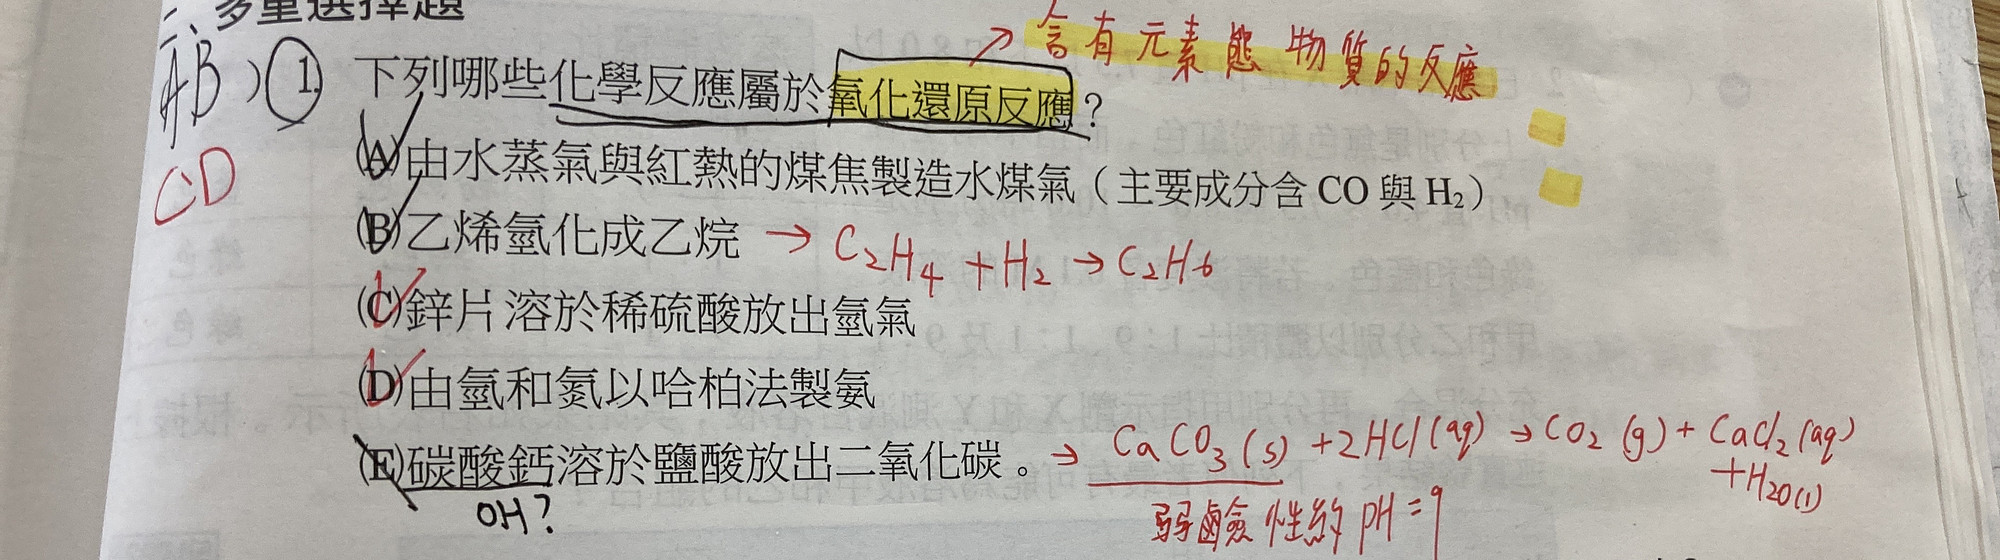 二、多重選擇題
→ 含有元素態物質的反應
AB ) 1. 下列哪些化學反應屬於氧化還原反應？
CD
(A)由水蒸氣與紅熱的煤焦製造水煤氣（主要成分含 CO 與 H₂）
(B)乙烯氫化成乙烷 → C₂H₄ + H₂ → C₂H₆
(C)鋅片溶於稀硫酸放出氫氣
(D)由氫和氮以哈柏法製氨
(E)碳酸鈣溶於鹽酸放出二氧化碳。→ CaCO₃(s) + 2HCl(aq) → CO₂(g) + CaCl₂(aq)
+ H₂O(l)
OH?
弱鹼性約 pH = 9